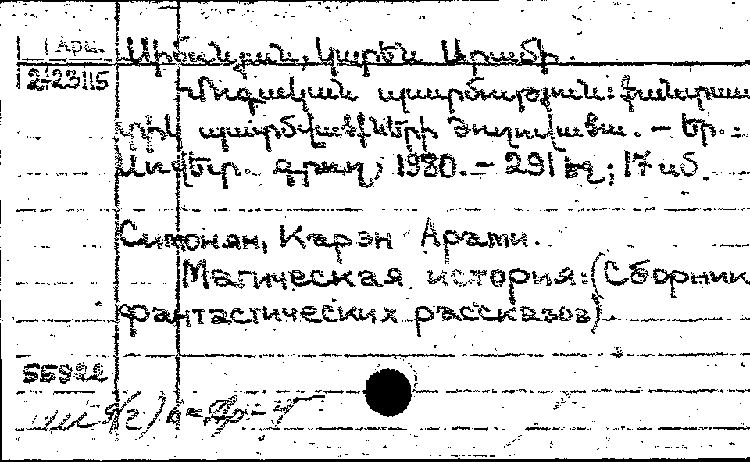 Арм.
2-23115
Սիմոնյան, Կարեն Արամի.
Մոգական պատմություն: Ֆանտաս
տիկ պատմվածքների ժողովածու. – Եր.:
Սովետ. գրող, 1980. – 291 էջ; 17 սմ.
Симонян, Карэн Арами.
Магическая история: (Сборник
фантастических рассказов).